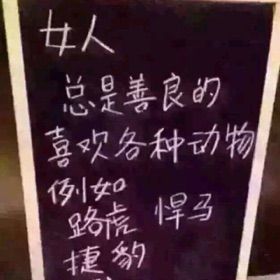 女人
总是善良的
喜欢各种动物
例如
路虎 悍马
捷豹